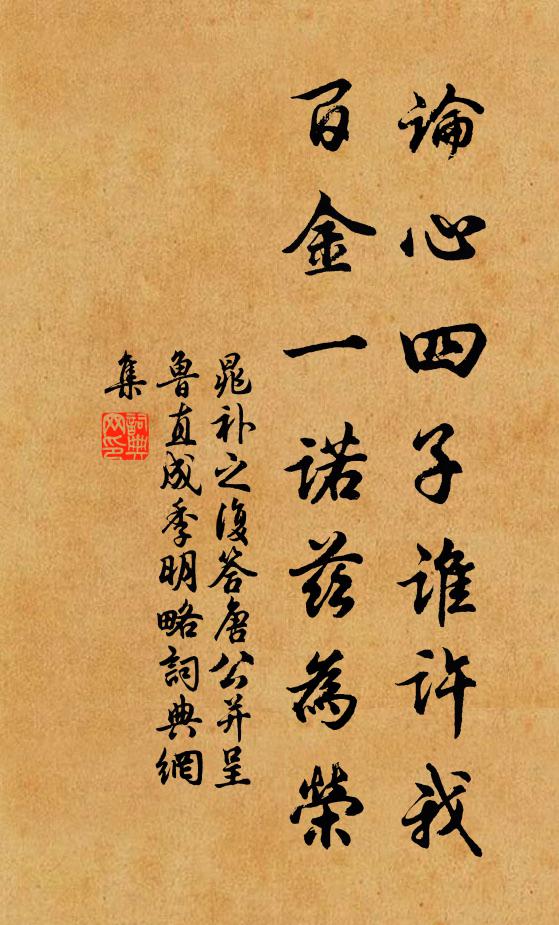 論心四子誰許我
百金一諾茲為榮
晁补之復答唐公并呈
魯直成季明略詞典網
集
詞典
网印